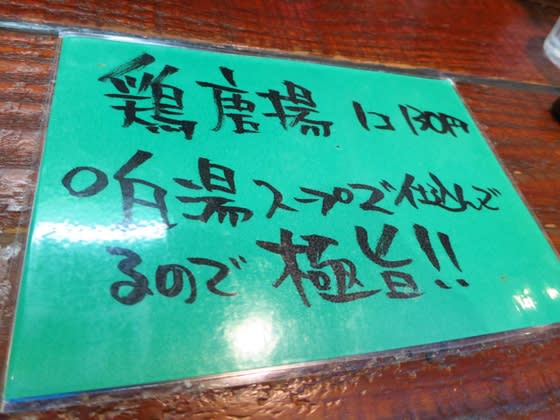 鶏唐揚 1コ130円
白湯スープで仕込んで
るので極旨!!